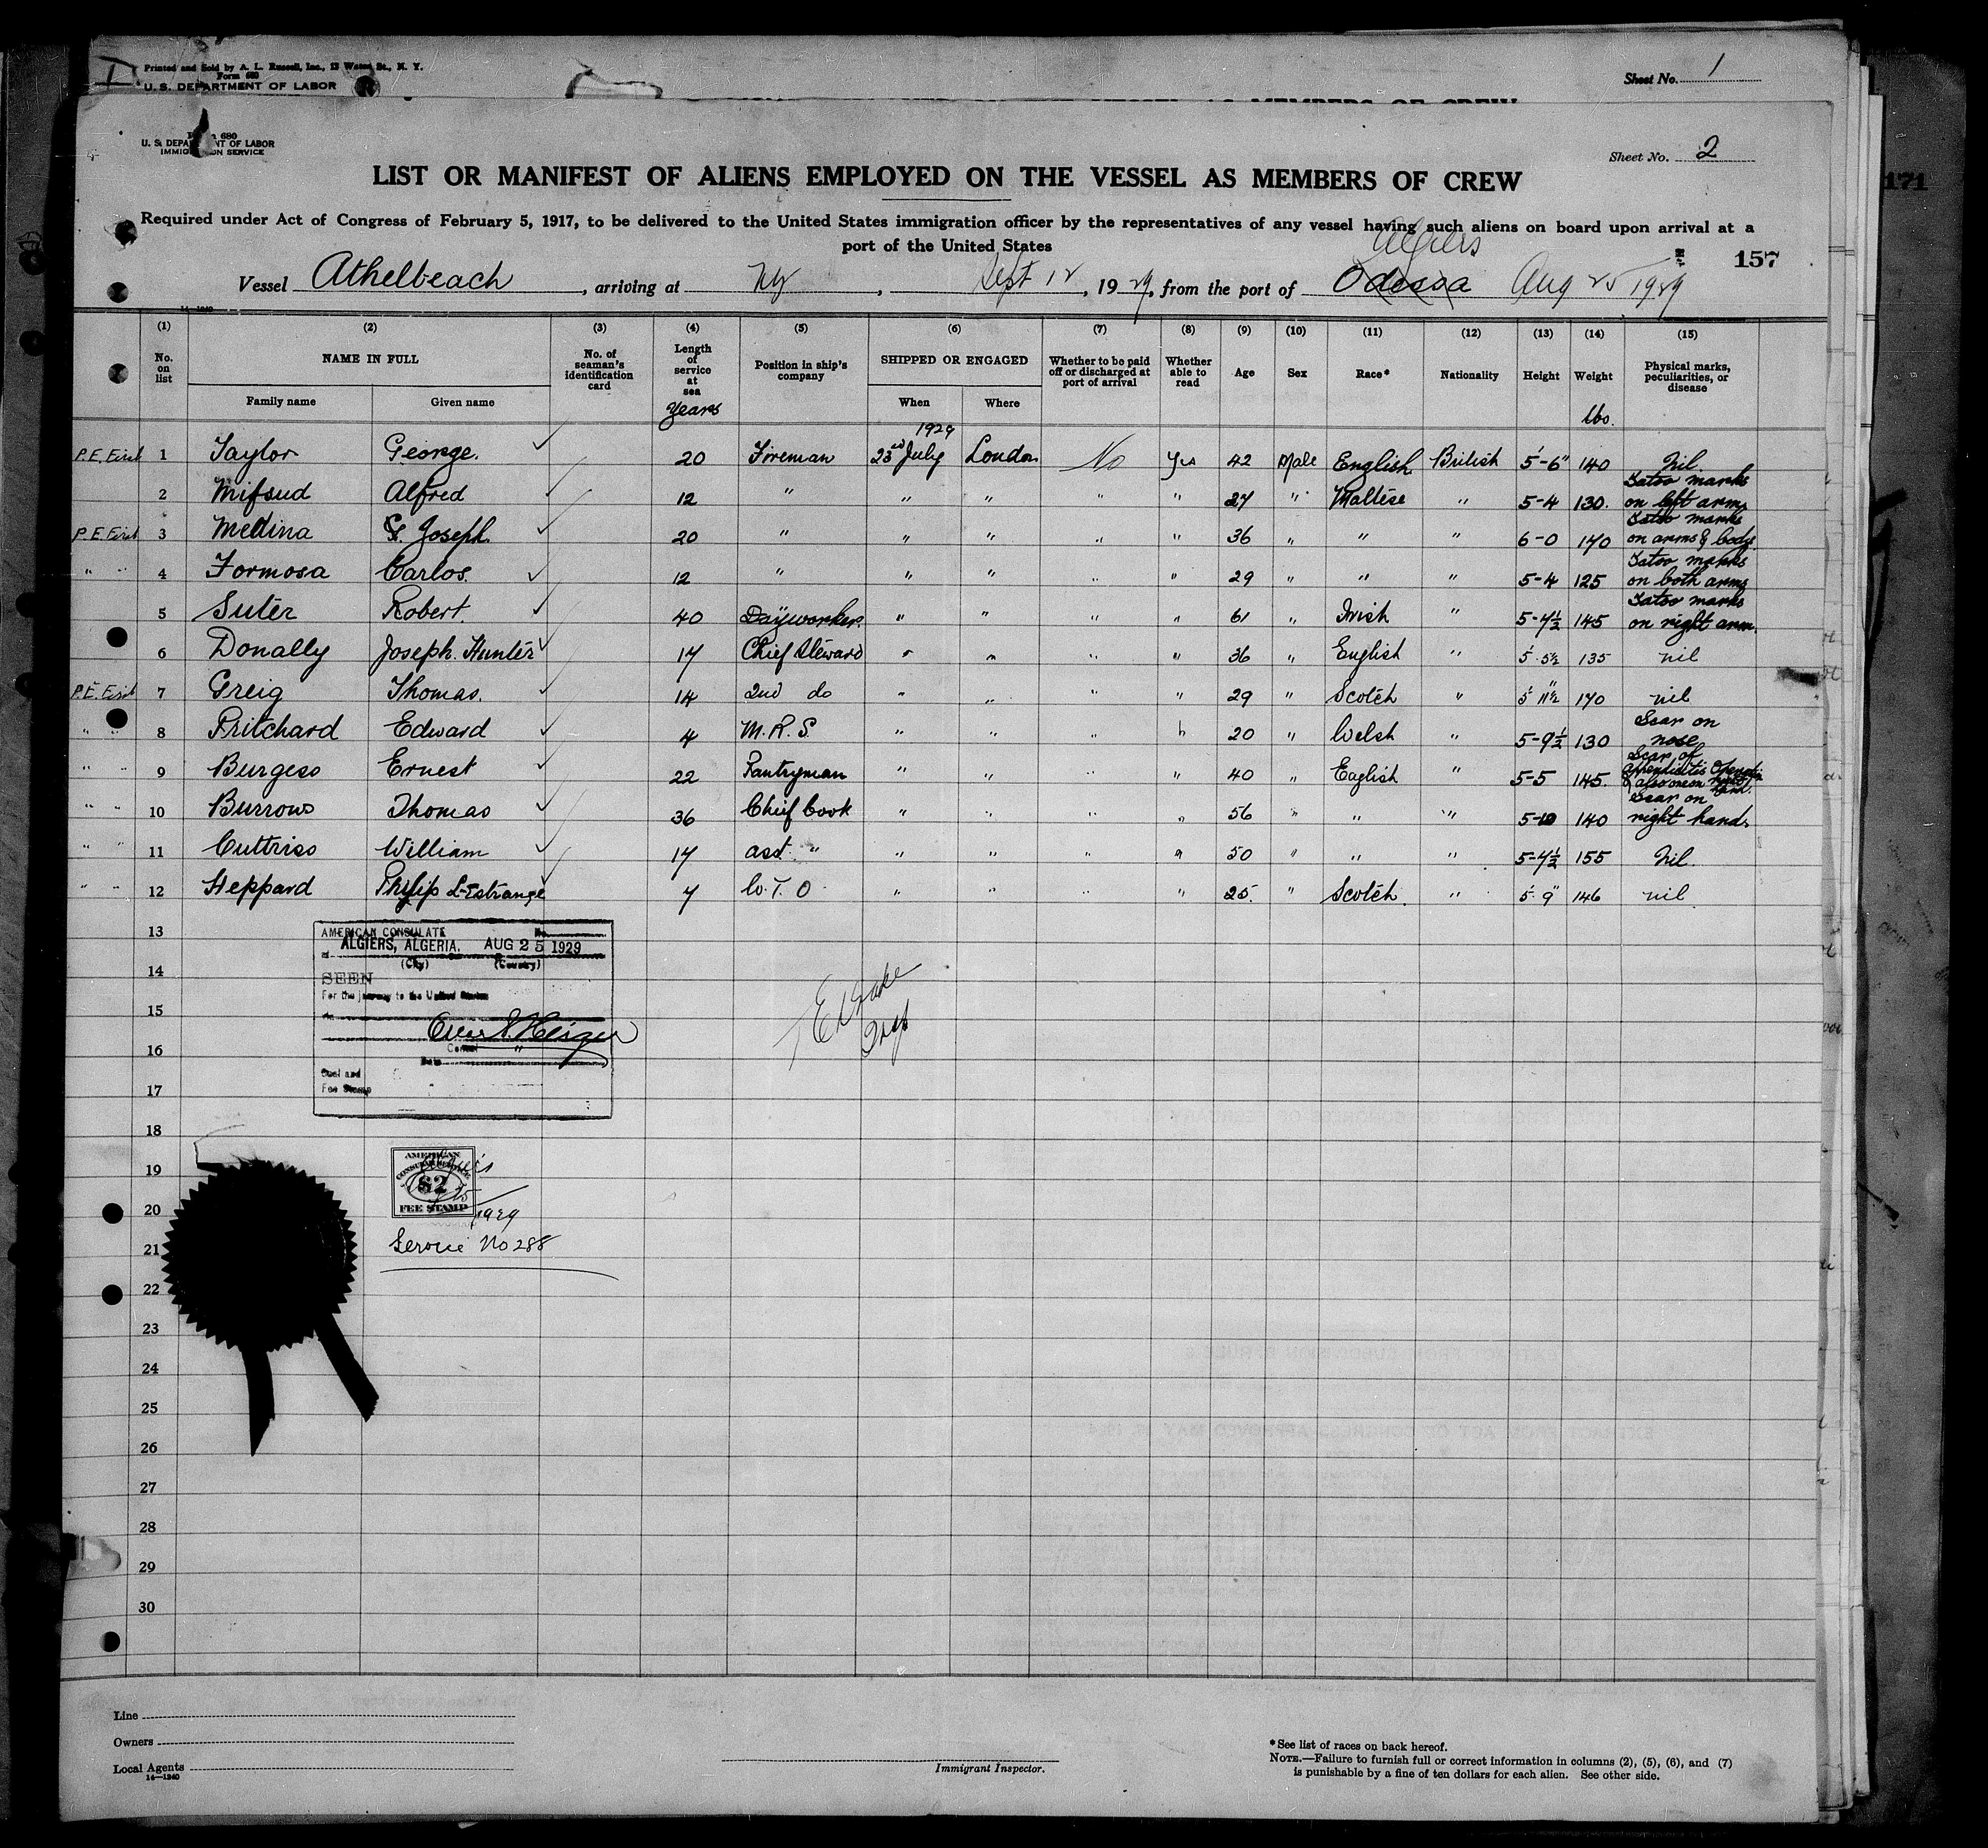 Printed and Sold by A. L. Russell, Inc., 13 Water St., N. Y.
Form 680
U. S. DEPARTMENT OF LABOR
Sheet No. 1
U. S. DEPARTMENT OF LABOR
IMMIGRATION SERVICE
Sheet No. 2
171
LIST OR MANIFEST OF ALIENS EMPLOYED ON THE VESSEL AS MEMBERS OF CREW
Required under Act of Congress of February 5, 1917, to be delivered to the United States immigration officer by the representatives of any vessel having such aliens on board upon arrival at a
port of the United States
Algiers
157
Vessel Athelbeach, arriving at NY, Sept 12, 1929, from the port of Odessa Aug 25 1929
(1) (2) (3) (4) (5) (6) (7) (8) (9) (10) (11) (12) (13) (14) (15)
No. on list NAME IN FULL No. of seaman's identification card Length of service at sea Position in ship's company SHIPPED OR ENGAGED Whether to be paid off or discharged at port of arrival Whether able to read Age Sex Race* Nationality Height Weight Physical marks, peculiarities, or disease
Family name Given name years When Where lbs.
1929
P.E. First 1 Taylor George. 20 Fireman 23rd July London No Yes 42 Male English British 5'-6" 140 Nil.
2 Mifsud Alfred 12 " " " " " 27 " Maltese " 5-4 130. Tatoo marks on left arm
P.E. First 3 Medina Joseph. 20 " " " " " 36 " " " 6-0 170 Tatoo marks on arms & body
" " 4 Formosa Carlos. 12 " " " " " 29 " " " 5-4 125 Tatoo marks on both arms
5 Suter Robert. 40 Dayworker. " " " " 61 " Irish " 5-7½ 145 Tatoo marks on right arm.
6 Donally Joseph. Hunter 17 Chief Steward " " " " 36 " English " 5'-5½ 135 nil
P.E. First 7 Greig Thomas. 14 2nd do " " " " 29 " Scotch " 5' 11½" 170 nil
" " 8 Pritchard Edward 4 M. R. S. " " " " 20 " Welsh " 5-9½ 130 Scar on nose
" " 9 Burgess Ernest 22 Pantryman " " " " 40 " English " 5-5 145. Scar of appendicitis
" " 10 Burrows Thomas 36 Chief Cook " " " " 56 " " " 5-10 140 Scar on right hand.
" " 11 Cuttriss William 17 asst " " " " " 50 " " " 5-7½ 155 Nil.
" " 12 Heppard Philip L'Estrange 7 W. T. O " " " " 25. " Scotch. " 5' 9" 146 nil.
13
AMERICAN CONSULATE No.
at ALGIERS, ALGERIA. AUG 25 1929
(City) (Country)
14
SEEN
For the journey to the United States
15
16
Consul
Date
Seal and
Fee Stamp
17
18
19
AMERICAN
CONSULAR SERVICE
Algiers
$2
FEE STAMP
1929
20
21
Service No 288
22
23
24
25
26
27
28
29
30
Line
Owners
Local Agents
14—1240
Immigrant Inspector.
*See list of races on back hereof.
NOTE.—Failure to furnish full or correct information in columns (2), (5), (6), and (7)
is punishable by a fine of ten dollars for each alien. See other side.